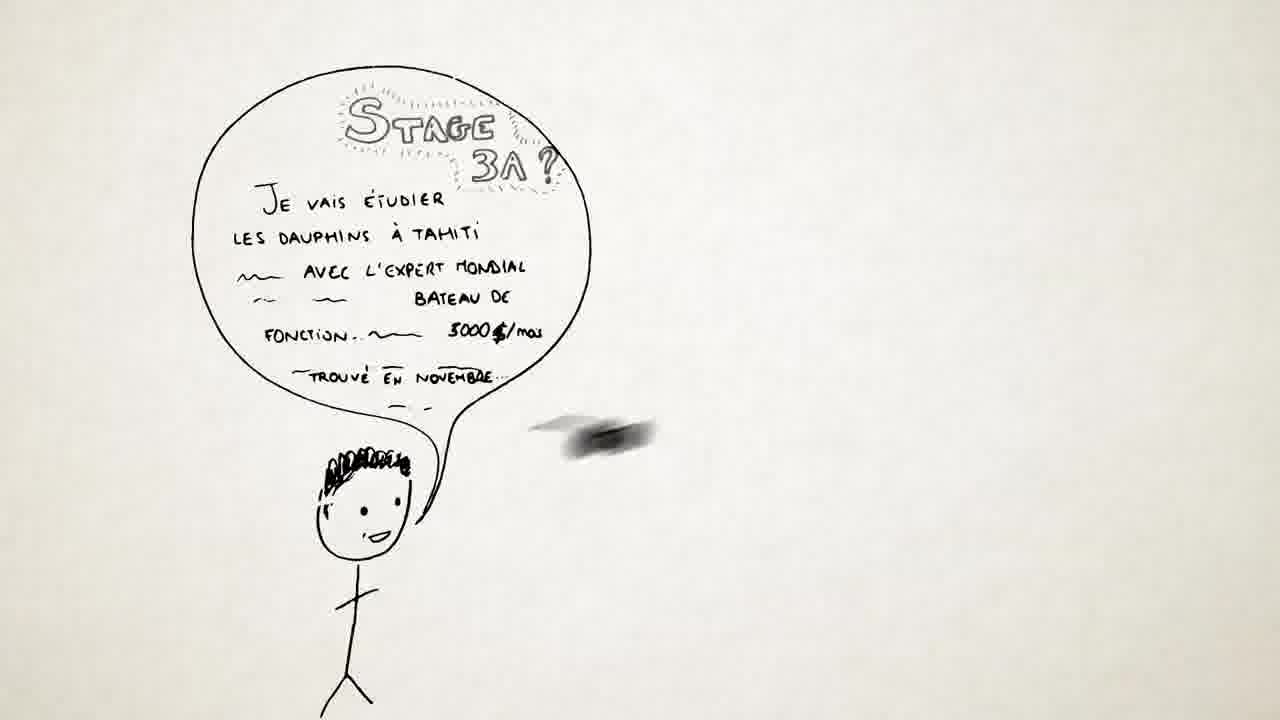 STAGE
3A ?
JE VAIS ÉTUDIER
LES DAUPHINS À TAHITI
AVEC L'EXPERT MONDIAL
BATEAU DE
FONCTION... 5000 $/mois
TROUVÉ EN NOVEMBRE...